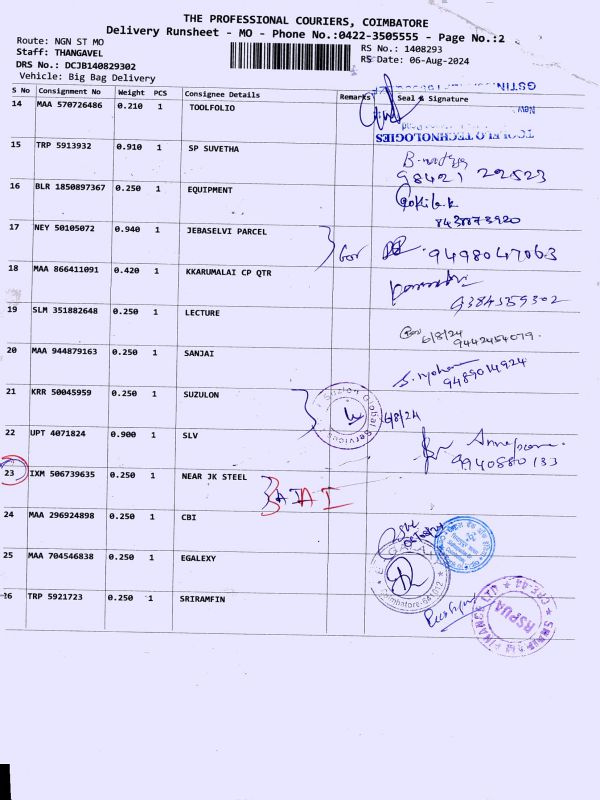 THE PROFESSIONAL COURIERS, COIMBATORE
Delivery Runsheet - MO - Phone No.:0422-3505555 - Page No.:2
Route: NGN ST MO
RS No.: 1408293
Staff: THANGAVEL
RS Date: 06-Aug-2024
DRS No.: DCJB140829302
Vehicle: Big Bag Delivery
S No Consignment No Weight PCS Consignee Details Remarks Seal & Signature
GSTIN.
14 MAA 570726486 0.210 1 TOOLFOLIO
TECHNOLOGIES
15 TRP 5913932 0.910 1 SP SUVETHA
98421 22523
16 BLR 1850897367 0.250 1 EQUIPMENT
8438873920
17 NEY 50105072 0.940 1 JEBASELVI PARCEL
9498047063
18 MAA 866411091 0.420 1 KKARUMALAI CP QTR
9384559302
19 SLM 351882648 0.250 1 LECTURE
6/8/24
9442454079.
20 MAA 944879163 0.250 1 SANJAI
9489014924
21 KRR 50045959 0.250 1 SUZULON
Suzlon Global Services
6/8/24
22 UPT 4071824 0.900 1 SLV
9940880133
23 IXM 506739635 0.250 1 NEAR JK STEEL
24 MAA 296924898 0.250 1 CBI
25 MAA 704546838 0.250 1 EGALEXY
Coimbatore-641012
26 TRP 5921723 0.250 1 SRIRAMFIN
FINANCE LTD
RSPUA